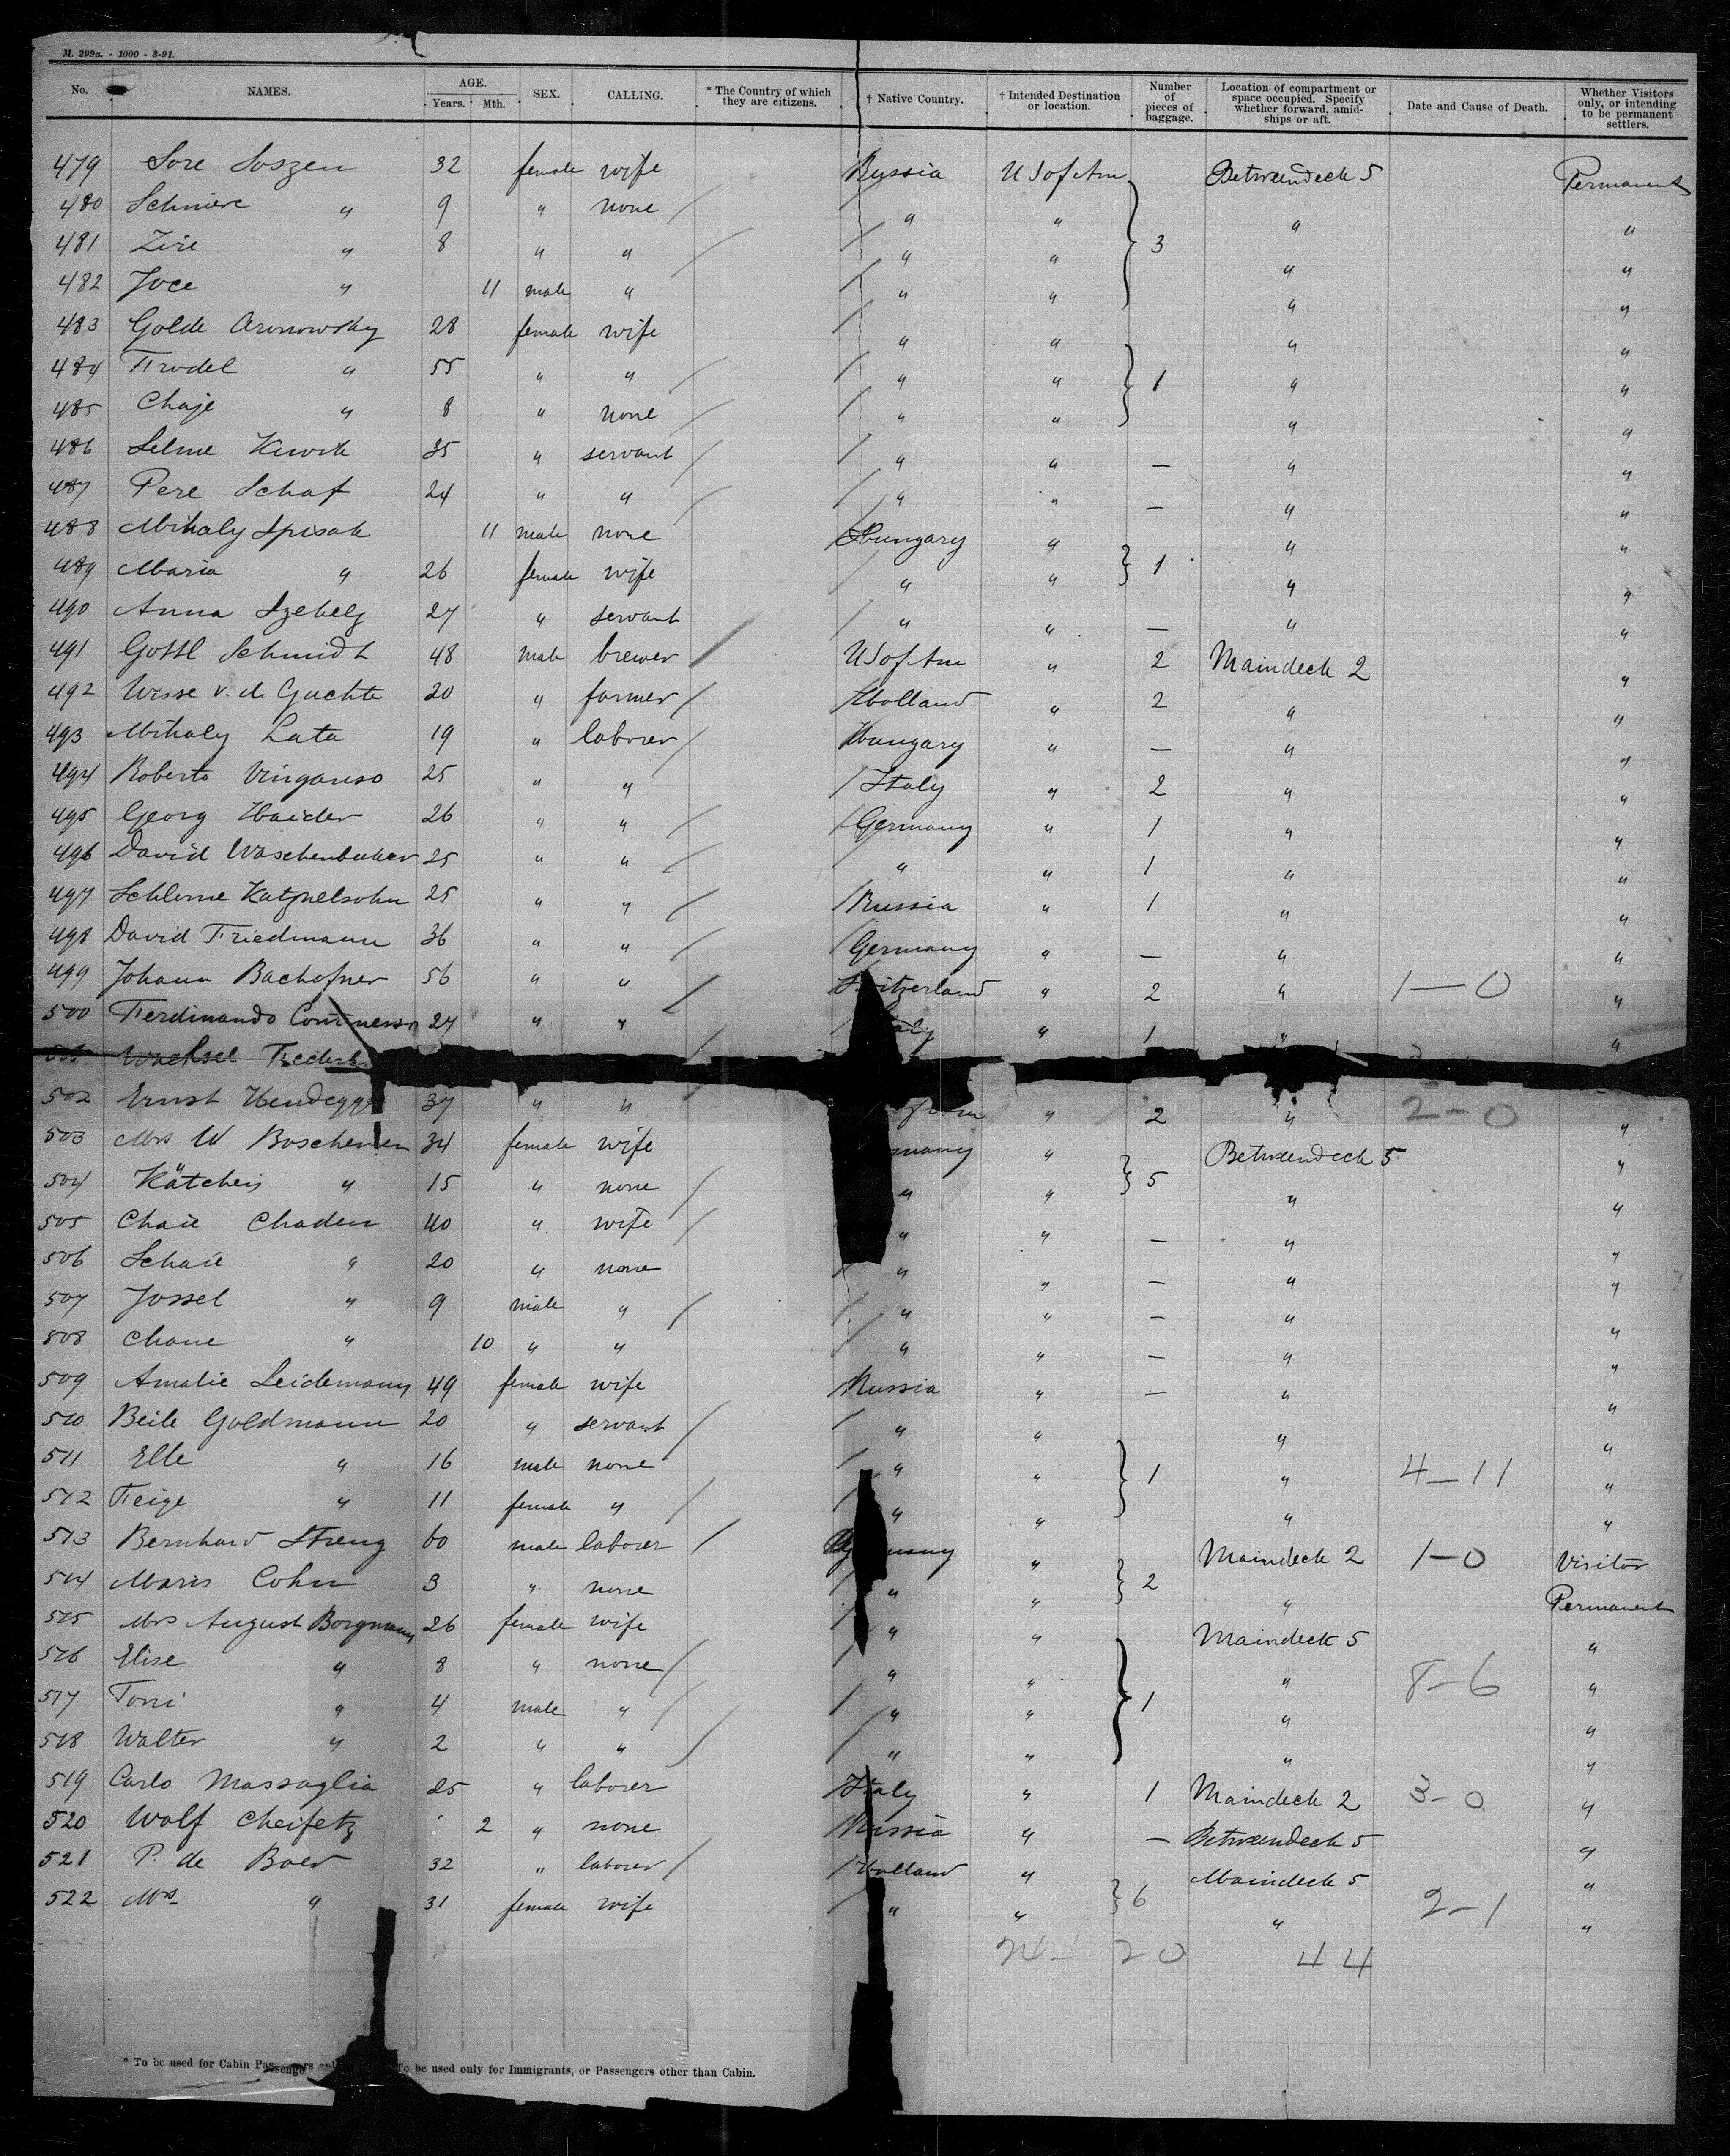 M. 299a. - 1000 - 3-91.
No. NAMES. AGE. Years. Mth. SEX. CALLING. * The Country of which they are citizens. † Native Country. † Intended Destination or location. Number of pieces of baggage. Location of compartment or space occupied. Specify whether forward, amidships or aft. Date and Cause of Death. Whether Visitors only, or intending to be permanent settlers.
479 Sore Soszen 32 female wife Russia U S of Am Betweendeck 5 Permanent
480 Schmere " 9 " none / / " " " "
481 Zire " 8 " " / / " " } 3 " "
482 Joce " 11 male " / " " " "
483 Golde Aronowsky 28 female wife / " " " "
484 Frodel " 55 " " / / " " } 1 " "
485 Chaje " 8 " none / / " " " "
486 Selme 35 " servant / / " " — " "
487 Pere Schaf 24 " " / / " " — " "
488 Mihaly Spisak 11 male none Hungary " } 1 " "
489 Maria " 26 female wife / " " " "
490 Anna 27 " servant / " " — " "
491 Gottl Schmidt 48 male brewer / U S of Am " 2 Maindeck 2 "
492 Wisse v. d. Guchte 20 " farmer / Holland " 2 " "
493 Mihaly Lata 19 " laborer / Hungary " — " "
494 Roberto 25 " " / Italy " 2 " "
495 Georg Haider 26 " " / / Germany " 1 " "
496 David 25 " " / / " " 1 " "
497 Schlome Katznelsohn 25 " " / / Russia " 1 " "
498 David Friedmann 36 " " / / Germany " — " "
499 Johann Bachofner 56 " " / Switzerland " 2 " 1—0 "
500 Ferdinando 24 " " / " 1 " "
502 Ernst 37 " " " 2 " 2-0 "
503 Mrs W 34 female wife many " } 5 Betweendeck 5 "
504 Kätchen " 15 " none / " " " "
505 Chaie Chaden 40 " wife / " " — " "
506 Schaie " 20 " none / " " — " "
507 Jossel " 9 male " / / " " — " "
508 Chane " 10 " " / " " — " "
509 Amalie Leidemann 49 female wife Russia " — " "
510 Beile Goldmann 20 " servant / / " " " "
511 Elle " 16 male none / " " } 1 " 4-11 "
512 Feige " 11 female " / / " " " "
513 Bernhard Streng 60 male laborer / many " } 2 Maindeck 2 1-0 Visitor
514 Maris Cohn 3 " none / " " " Permanent
515 Mrs August Borgmann 26 female wife / " " Maindeck 5 "
516 Elise " 8 " none / / " " } 1 " 8-6 "
517 Toni " 4 male " / / " " " "
518 Walter " 2 " " / / " " " "
519 Carlo Massaglia 25 " laborer Italy " 1 Maindeck 2 3-0 "
520 Wolf Cheifetz 2 " none Russia " — Betweendeck 5 "
521 P. de Boer 32 " laborer / / Holland " } 6 Maindeck 5 "
522 Mrs " 31 female wife / " " " 2-1 "
24- 20 44
* To be used for Cabin Passengers To be used only for Immigrants, or Passengers other than Cabin.